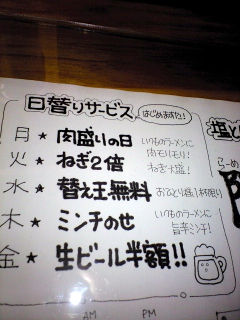 日替りサービス はじめました!
月 ★ 肉盛りの日 いつものラーメンに 肉モリモリ!
火 ★ ねぎ2倍 ねぎ大盛!
水 ★ 替え玉無料 おひとり様1杯限り
木 ★ ミンチのせ いつものラーメンに 旨辛ミンチ!
金 ★ 生ビール半額!!
塩と
らーめ
AM PM